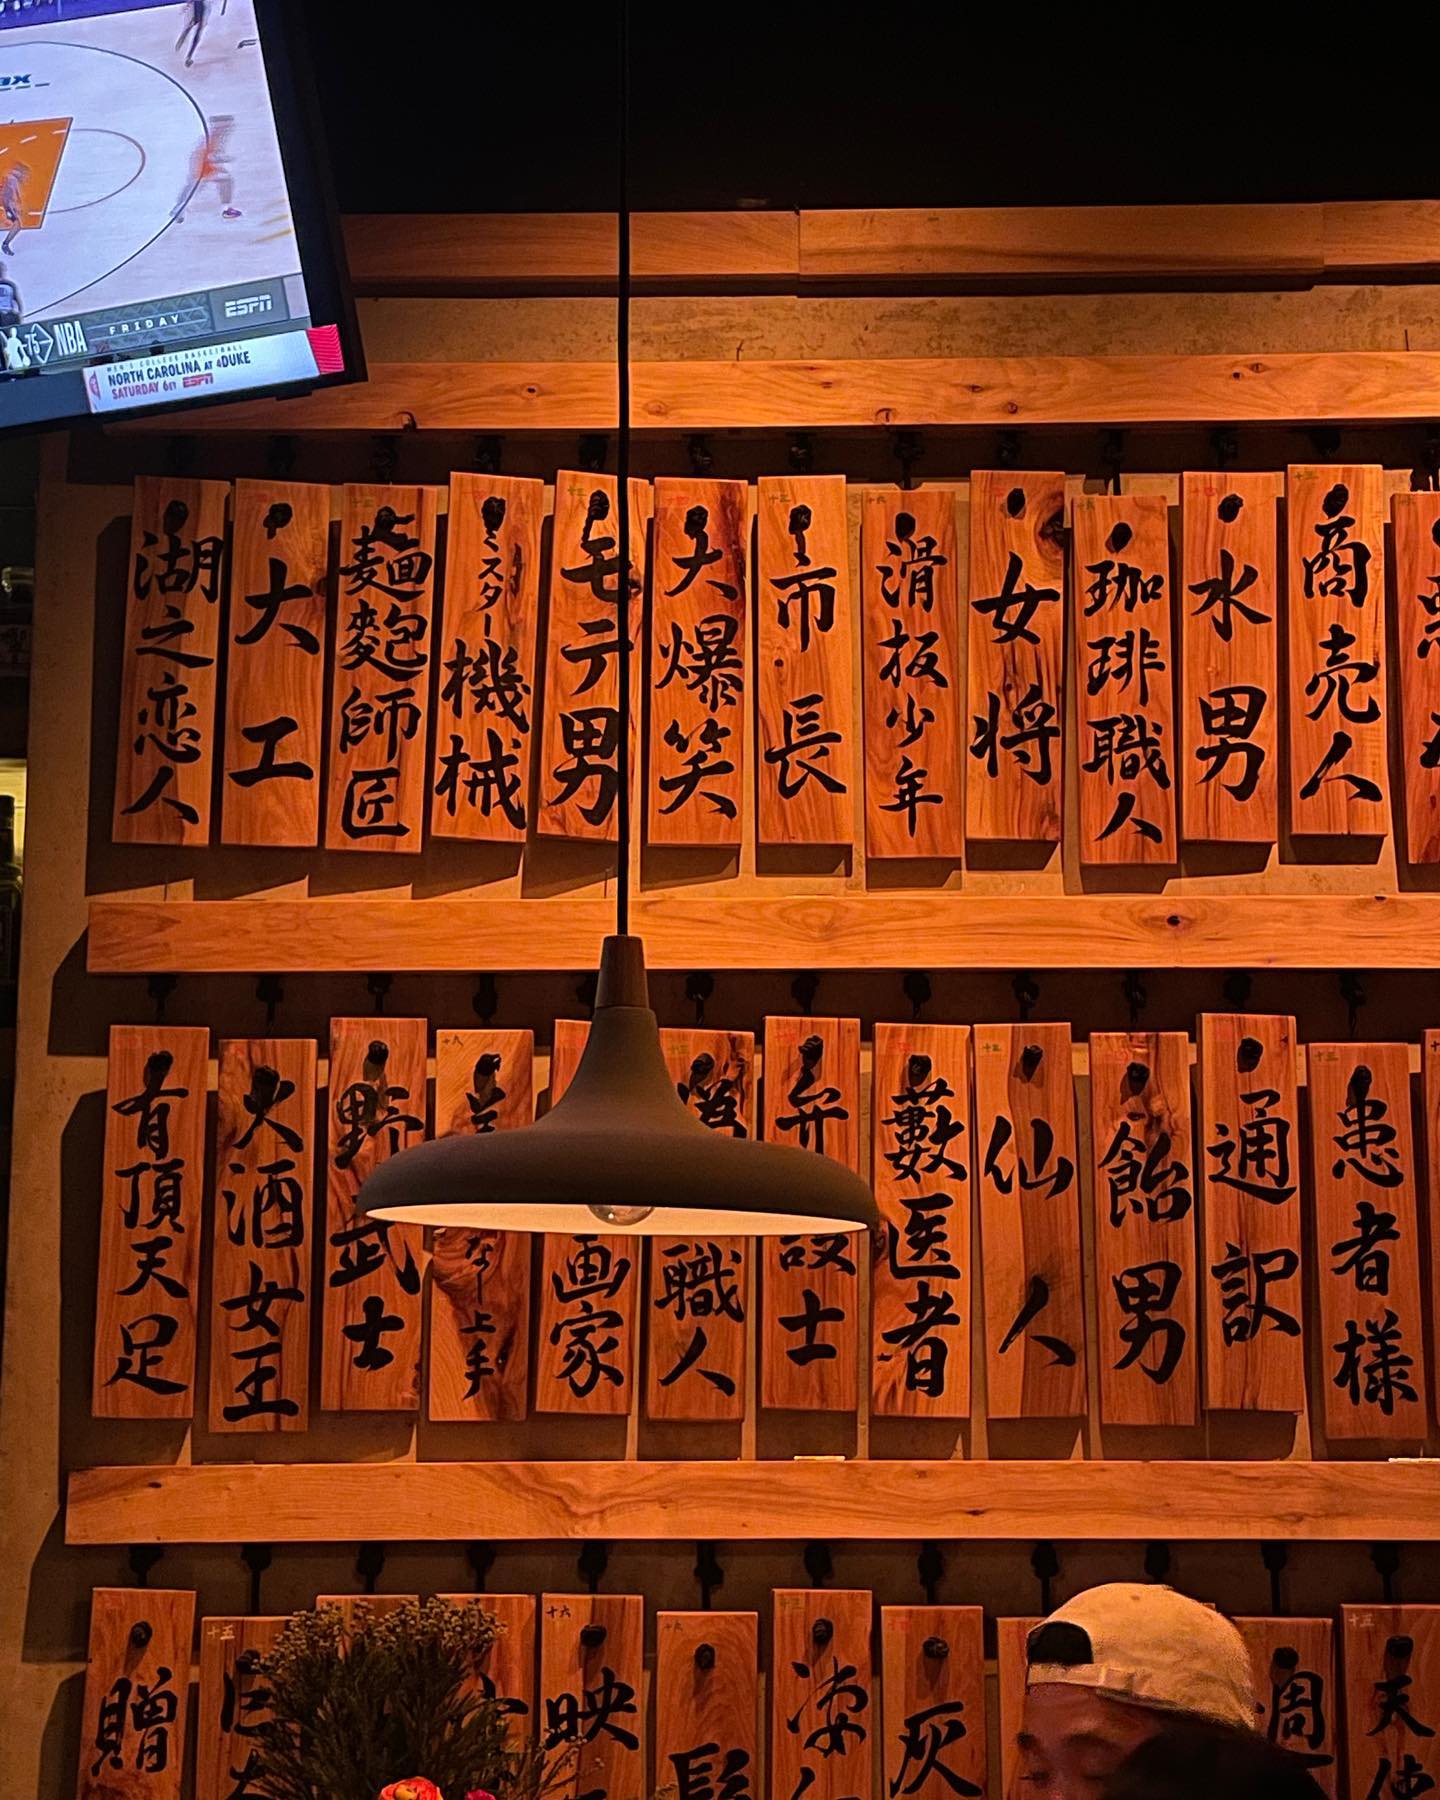 ESPN
NBA FRIDAY
MEN'S COLLEGE BASKETBALL
NORTH CAROLINA AT 4DUKE
SATURDAY 6ET ESPN
湖之恋人
大工
麺麭師匠
ミスター機械
モテ男
大爆笑
市長
滑板少年
女将
珈琲職人
水男
商売人
有頂天足
火酒女王
野武士
十八
なー上手
画家
職人
弁設士
藪医者
仙人
飴男
通訳
患者様
贈
十五
十六
映
髭
凄
灰
週
十五
天使